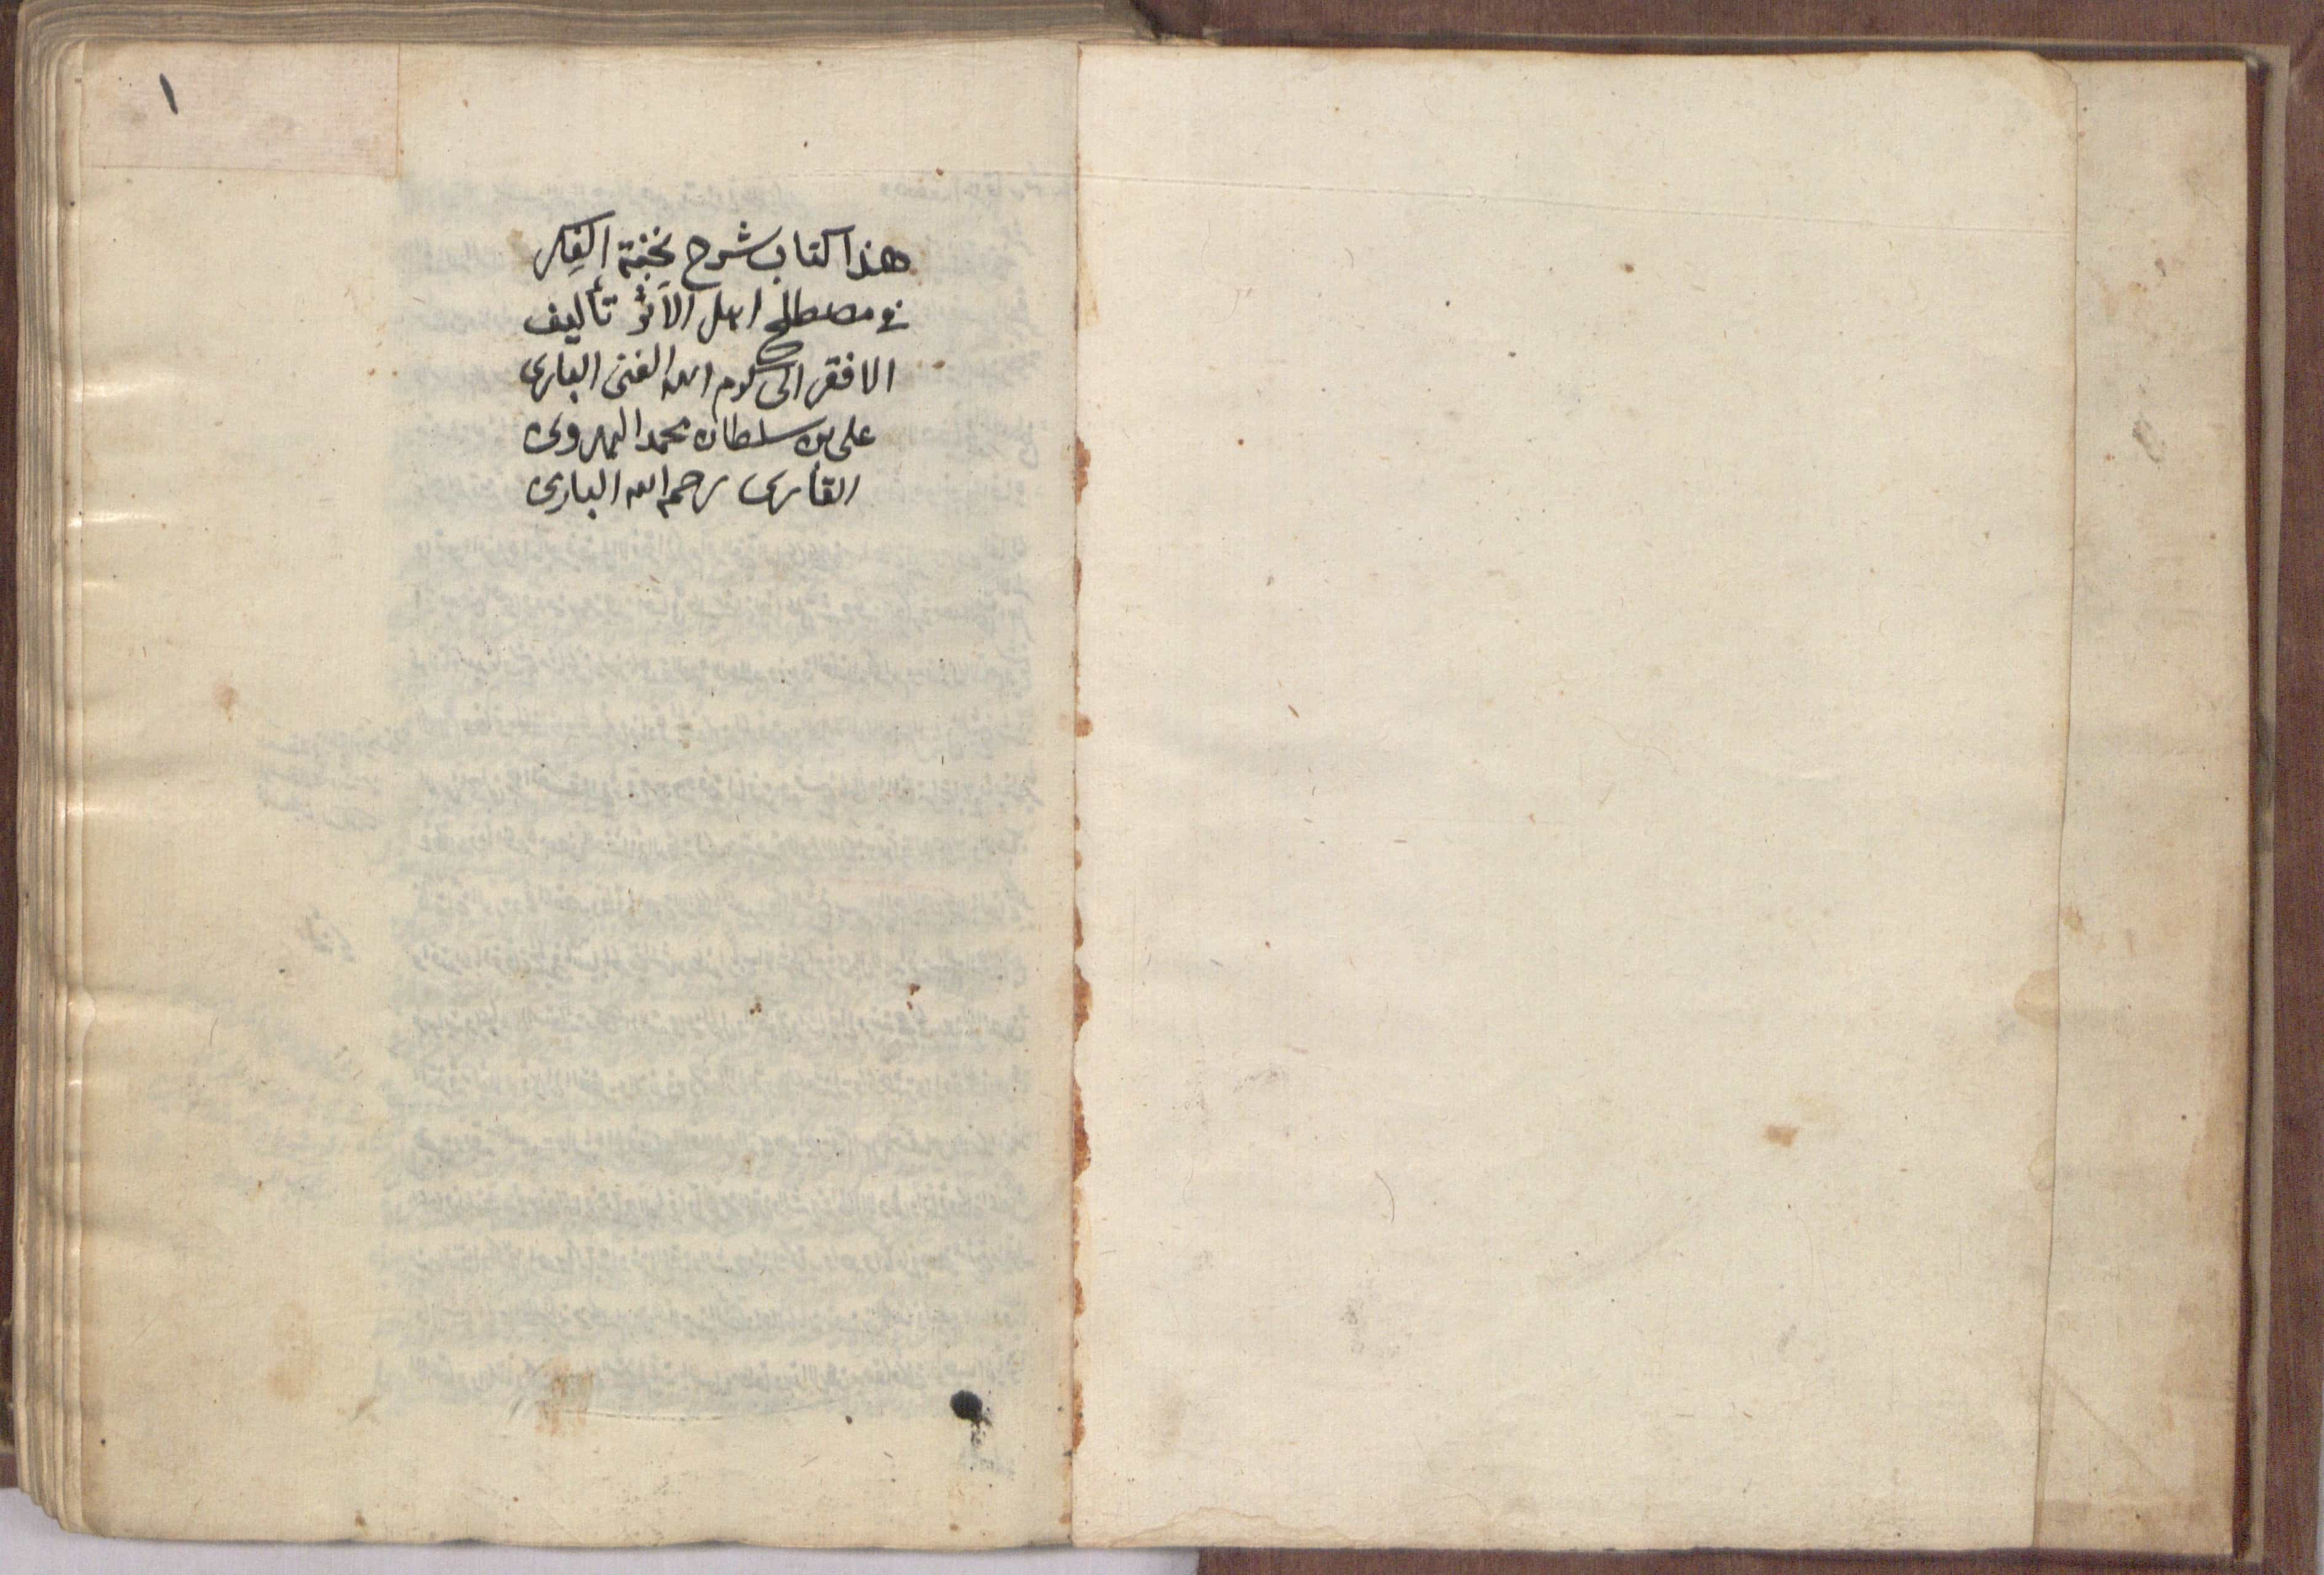 ١
هذا كتاب شرح نخبة الفكر
في مصطلح اهل الأثر تأليف
الافقر الى كرم الله الغني الباري
على بن سلطان محمد الهروي
القاري رحمه الله الباري